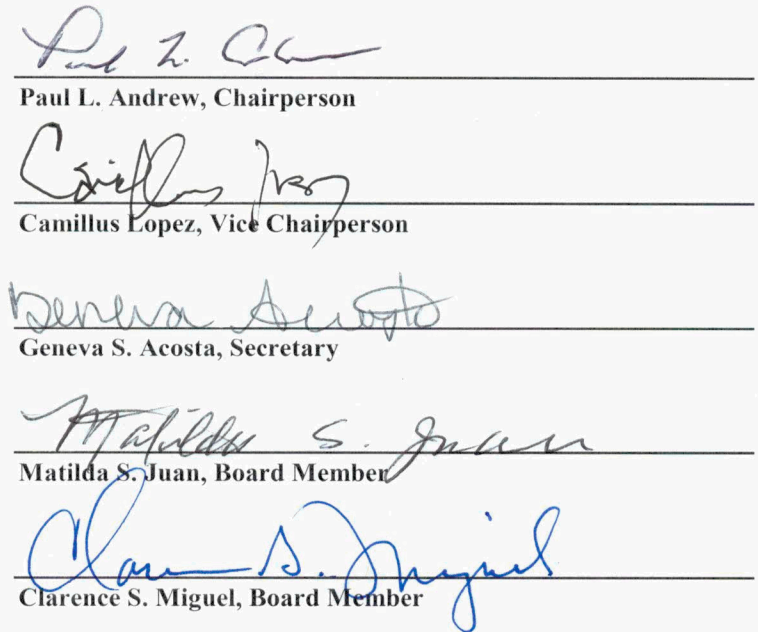 Paul L.
Paul L. Andrew, Chairperson
Camillus Lopez
Camillus Lopez, Vice Chairperson
Geneva Acosta
Geneva S. Acosta, Secretary
Matilda S. Juan
Matilda S. Juan, Board Member
Clarence S. Miguel
Clarence S. Miguel, Board Member